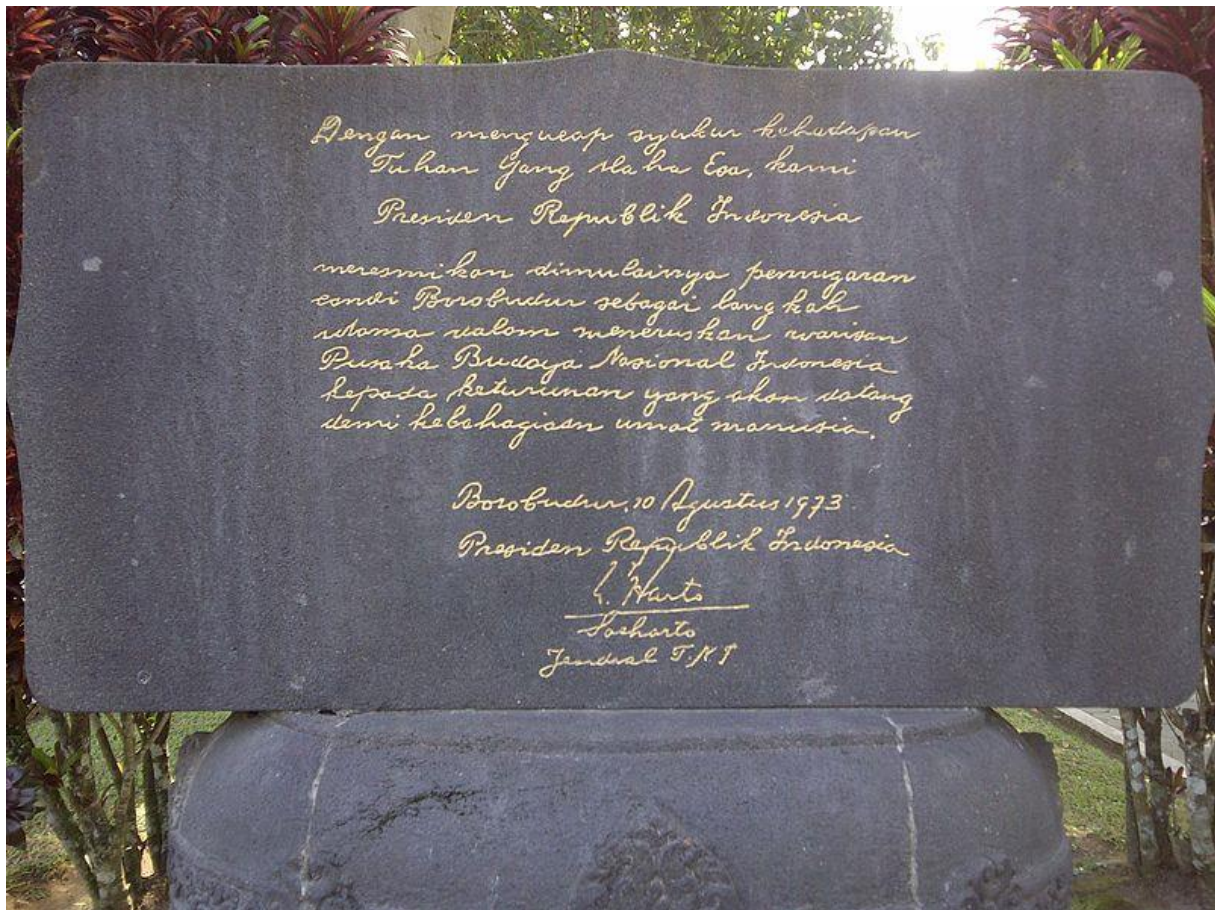 Dengan mengucap syukur kehadapan
Tuhan Yang Maha Esa, kami
Presiden Republik Indonesia
meresmikan dimulainya pemugaran
candi Borobudur sebagai langkah
utama dalam meneruskan warisan
Pusaka Budaya Nasional Indonesia
kepada keturunan yang akan datang
demi kebahagiaan umat manusia.
Borobudur, 10 Agustus 1973
Presiden Republik Indonesia
Soeharto
Jendral T.N.I